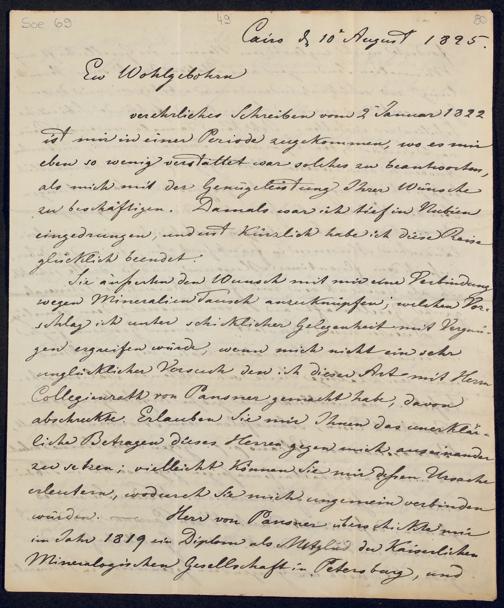 Soe 69
49
80
Cairo d 10n August 1825.
Ew Wohlgebohrn
verehrliches Schreiben vom 2n Januar 1822
ist mir in einer Periode zugekommen, wo es mir
eben so wenig verstattet war solches zu beantworten,
als mich mit der Genügeleistung Ihrer Wünsche
zu beschäftigen. Damals war ich tief in Nubien
eingedrungen, und erst kürzlich habe ich diese Reise
glücklich beendet.
Sie äuserten den Wunsch mit mir eine Verbindung
wegen Mineralien Tausch anzuknüpfen; welchen Vor-
schlag ich unter schicklicher Gelegenheit mit Vergnü-
gen ergreifen würde, wenn mich nicht ein sehr
unglücklicher Versuch den ich dieser Art mit Herrn
Collegienrath von Pansner gemacht habe, davon
abschreckte. Erlauben Sie mir Ihnen das unerklär-
liche Betragen dieses Herren gegen mich auseinander
zu setzen; vielleicht können Sie mir dessen Ursache
erleutern, wodurch Sie mich ungemein verbinden
würden. Herr von Pansner überschickte mir
im Jahr 1819 ein Diplom als Mitglied der Kaiserlichen
Mineralogischen Gesellschaft in Petersburg, und